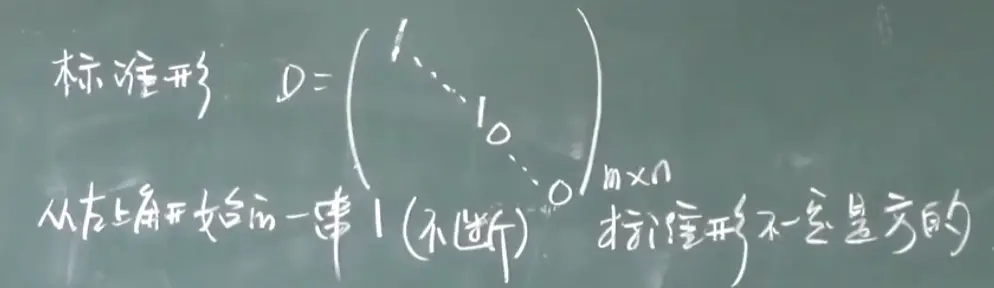 标准形 D = ( 1 ⋱ 1 0 ⋱ 0 ) m×n
从左上角开始的一串1(不断) 标准形不一定是方的